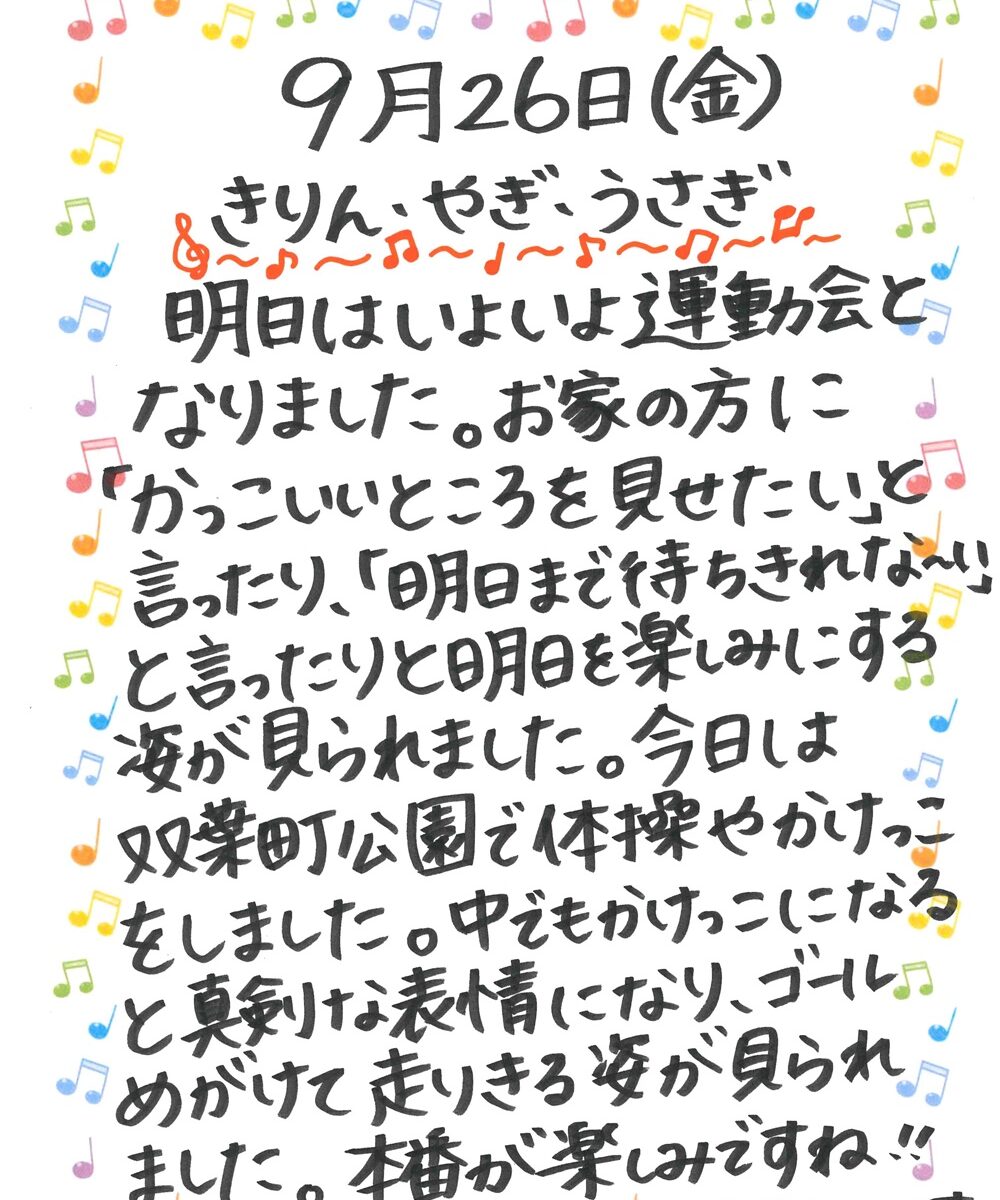 9月26日(金)
きりん、やぎ、うさぎ
明日はいよいよ運動会と
なりました。お家の方に
「かっこいいところを見せたい」と
言ったり、「明日まで待ちきれな〜い」
と言ったりと明日を楽しみにする
姿が見られました。今日は
双葉町公園で体操やかけっこ
をしました。中でもかけっこになる
と真剣な表情になり、ゴール
めがけて走りきる姿が見られ
ました。本番が楽しみですね!!